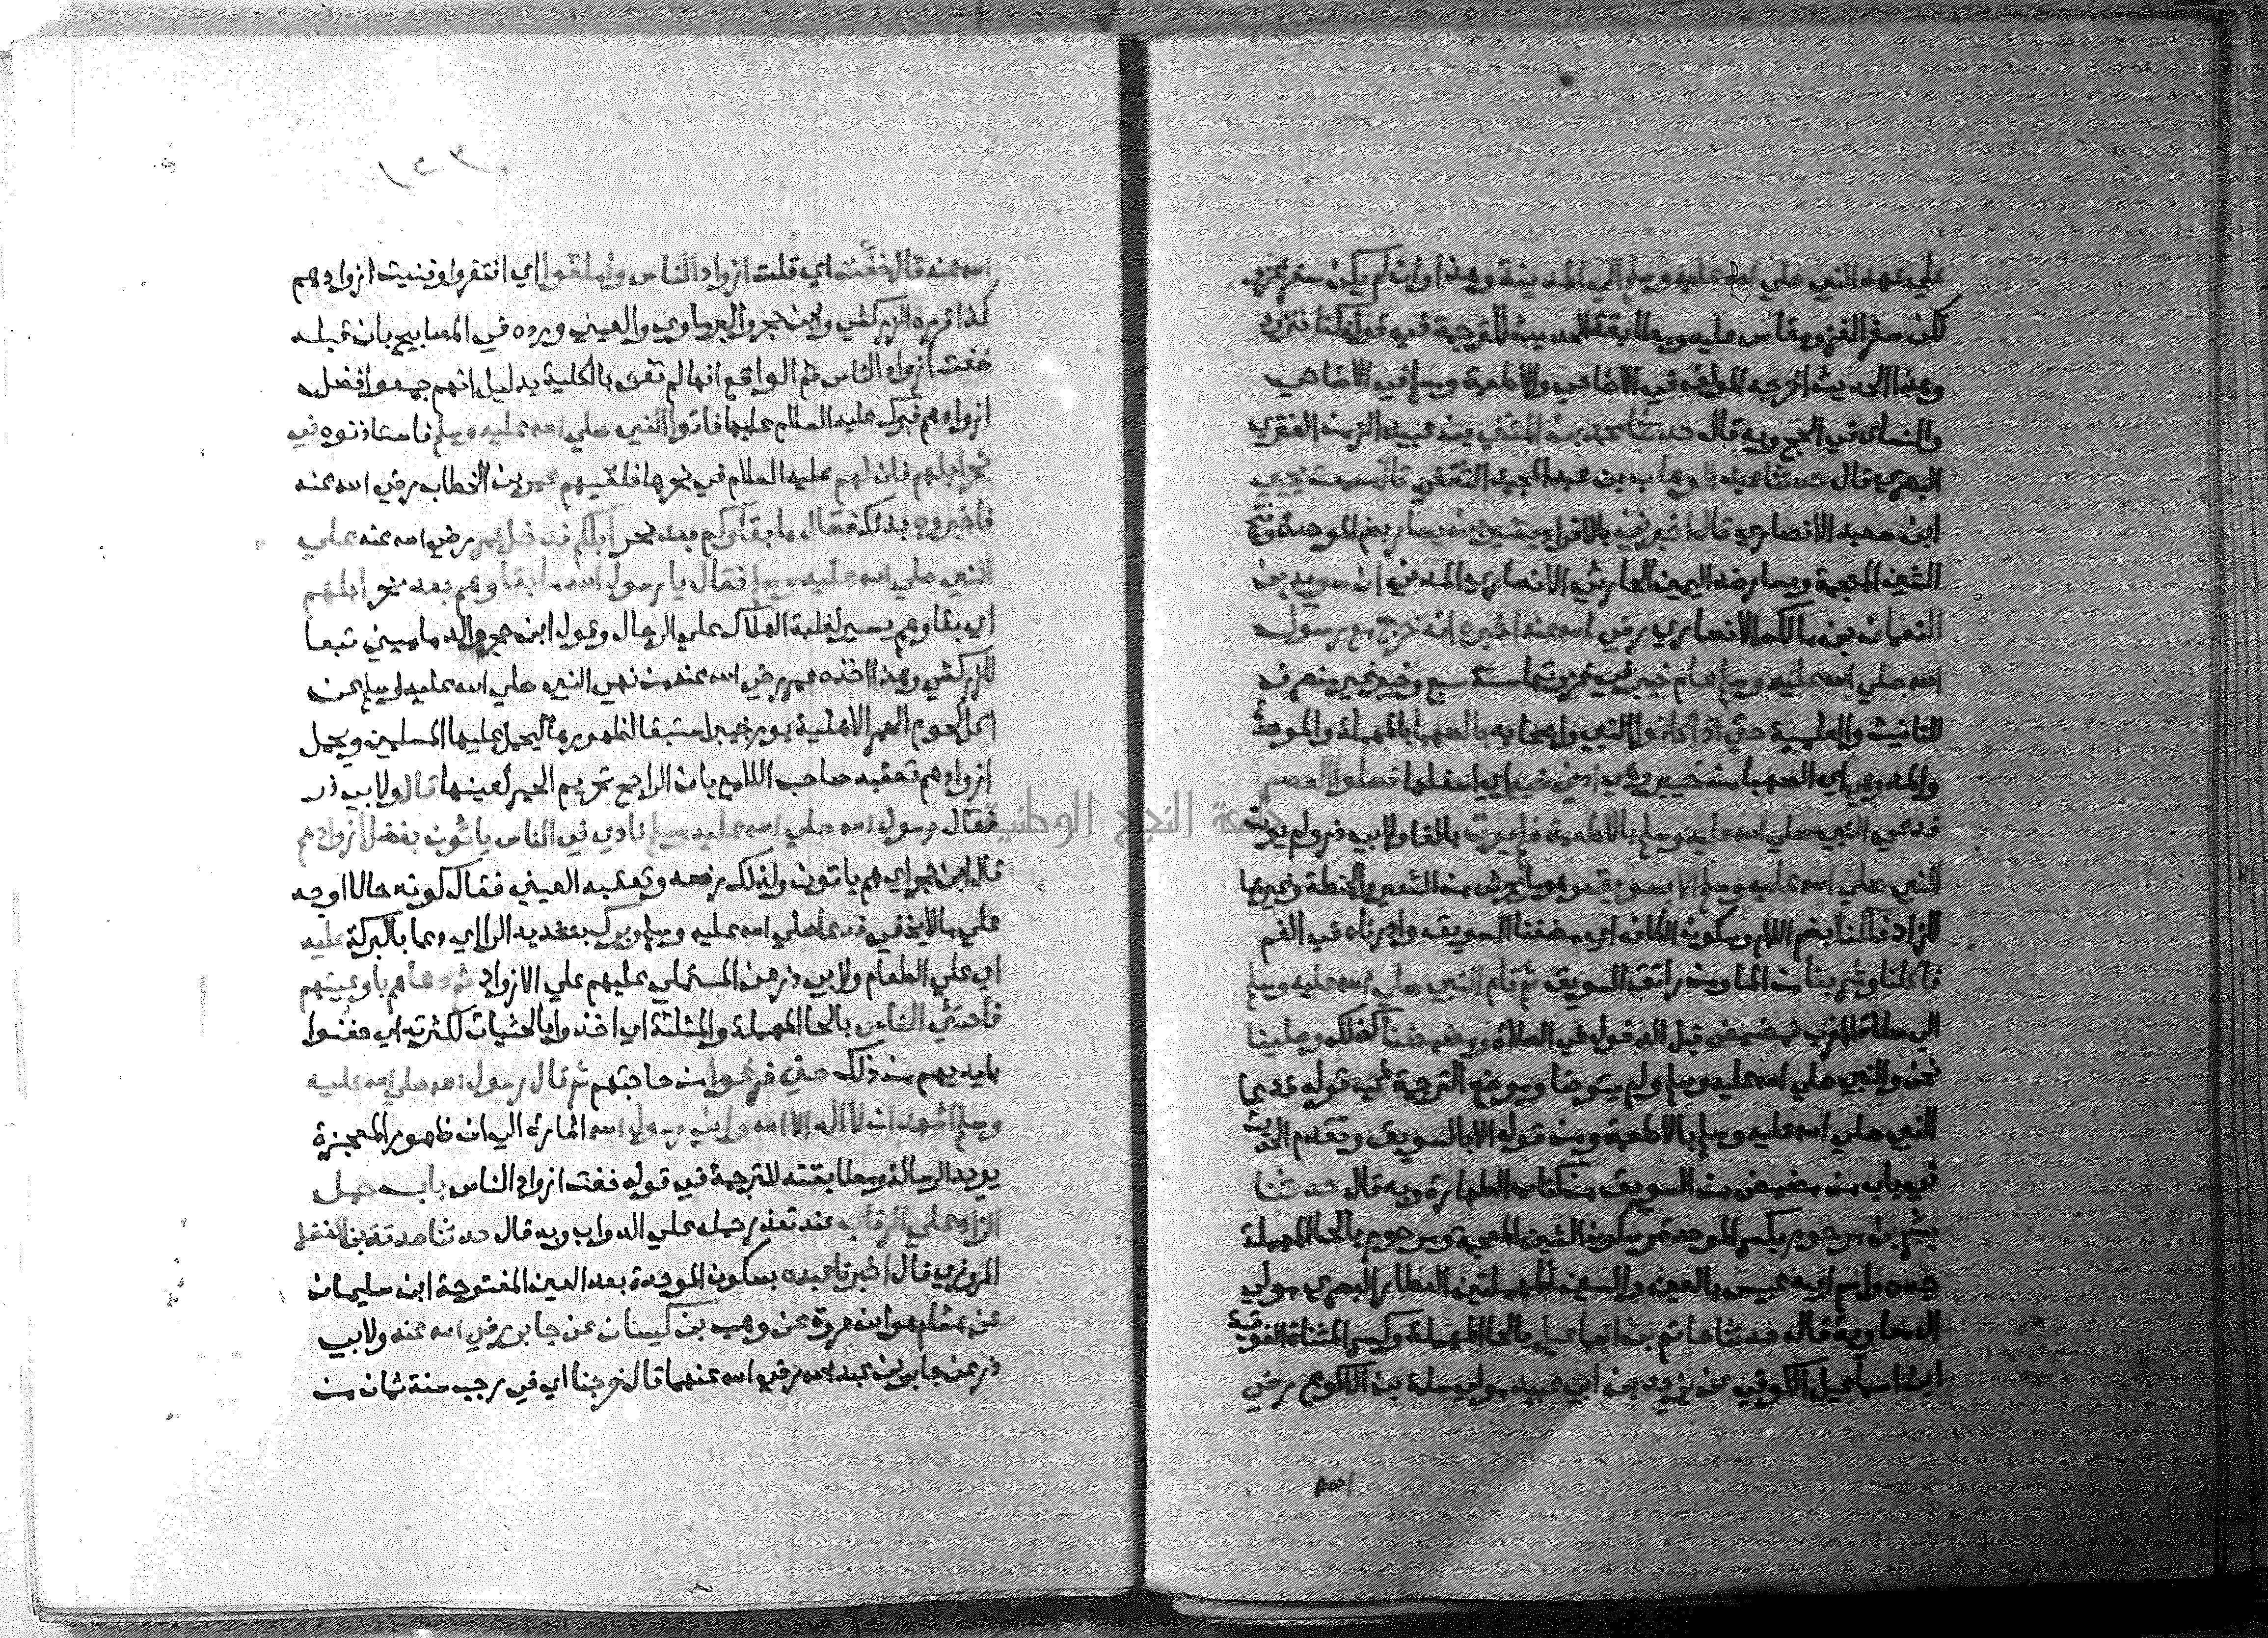 علي عهد النبي صلي الله عليه وسلم الي المدينة وهذا وان لم يكن سفر غزو
لكن سفر الغزو مقاس عليه ومطابقة الحديث للترجمة في قوله كنا نتزود
وهذا الحديث اخرجه المولف في الاضاحي والاطعمة ومسلم في الاضاحي
والنساى في الحج وبه قال حدثنا محمد بن المثني بن عبيد الزمن العنزي
البصري قال حدثنا عبد الوهاب بن عبد المجيد الثقفي قال سمعت يحيي
ابن سعيد الانصاري قال اخبرني بالافراد بشير بن يسار بضم الموحدة وفتح
الشين المعجمة ويسار ضد اليمين الحارثي الانصاري المدني ان سويد بن
النعمان بن مالك الانصاري رضي الله عنه اخبره انه خرج مع رسول
الله صلي الله عليه وسلم عام خيبر في غزوتها سنة سبع وخيبر غير منصرف
للتانيث والعلمية حتي اذا كانوا النبي واصحابه بالصهبا بالمهملة والموحدة
والمد وهي اي الصهبا من خيبر وهي ادني خيبر اي اسفلها فصلوا العصر
فدعي النبي صلي الله عليه وسلم بالاطعمة فلم يوت بالفا ولابي ذر ولم يوت
النبي صلي الله عليه وسلم الا بسويق وهو ما يجرش من الشعير والحنطة وغيرهما
للزاد فلكنا بضم اللام وسكون الكاف اي مضغنا السويق وادرناه في الفم
فاكلنا وشربنا من الما ومن رائق السويق ثم قام النبي صلي الله عليه وسلم
الي صلاة المغرب فمضمض قبل الدخول في الصلاة ومضمضنا كذلك وصلينا
نحن والنبي صلي الله عليه وسلم ولم يتوضا وموضع الترجمة قوله فدعا
النبي صلي الله عليه وسلم بالاطعمة ومن قوله الا بالسويق وتقدم الحديث
في باب من مضمض من السويق من كتاب الطهارة وبه قال حدثنا
بشر بن مرحوم بكسر الموحدة وسكون الشين المعجمة ومرحوم بالحا المهملة
جده واسم ابيه عبيس بالعين والسين المهملتين العطار البصري مولي
ال معاوية قال حدثنا حاتم بن اسماعيل بالحا المهملة وكسر المثناة الفوقية
ابن اسماعيل الكوفي عن يزيد بن ابي عبيد مولي سلمة بن الاكوع رضي
الله
الله عنه قال خفت اي قلت ازواد الناس واملقوا اي افتقروا وفنيت ازوادهم
كذا قرره الزركشي وابن حجر والبرماوي والعيني ورده في المصابيح بان قبله
خفت ازواد الناس ثم الواقع انها لم تفن بالكلية بدليل انهم جمعوا فضل
ازوادهم فبرك عليه السلام عليها فاتوا النبي صلي الله عليه وسلم فاستاذنوه في
نحر ابلهم فاذن لهم عليه السلام في نحرها فلقيهم عمر بن الخطاب رضي الله عنه
فاخبروه بذلك فقال ما بقاوكم بعد نحر ابلكم فدخل عمر رضي الله عنه علي
النبي صلي الله عليه وسلم فقال يا رسول الله ما بقاوهم بعد نحر ابلهم
اي بقاوهم يسير لغلبة الهلاك علي الرجال وقول ابن حجر والدماميني تبعا
للزركشي وهذا اخذه عمر رضي الله عنه من نهي النبي صلي الله عليه وسلم عن
اكل لحوم الحمر الاهلية يوم خيبر استبقا لظهورها ليحمل عليها المسلمين ويحمل
ازوادهم تعقبه صاحب اللامع بان الراجح تحريم الحمر لعينها قال ولابي ذر
فقال رسول الله صلي الله عليه وسلم نادي في الناس ياتون بفضل ازوادهم
قال ابن حجر اي هم ياتون ولذلك رفعه وتعقبه العيني فقال كونه حالا اوجه
علي ما لا يخفي فدعا صلي الله عليه وسلم وبرك بتشديد الرا اي دعا بالبركة عليه
اي علي الطعام ولابي ذر عن المستملي عليهم علي الازواد ثم دعاهم باوعيتهم
فاحتثي الناس بالحا المهملة والمثلثة اي اخذوا بالحثيات لكثرته اي حفنوا
بايديهم من ذلك حتي فرغوا من حاجتهم ثم قال رسول الله صلي الله عليه
وسلم اشهد ان لا اله الا الله واني رسول الله اشارة الي ان ظهور المعجزة
يويد الرسالة ومطابقته للترجمة في قوله خفت ازواد الناس باب حمل
الزاد علي الرقاب عند تعذر حمله علي الدواب وبه قال حدثنا صدقة بن الفضل
المروزي قال اخبرنا عبده بسكون الموحدة بعد العين المفتوحة ابن سليمان
عن هشام هو ابن عروة عن وهب بن كيسان عن جابر رضي الله عنه ولابي
ذر عن جابر بن عبد الله رضي الله عنهما قال خرجنا اي في رجب سنة ثمان من
جامعة النجاح الوطنية